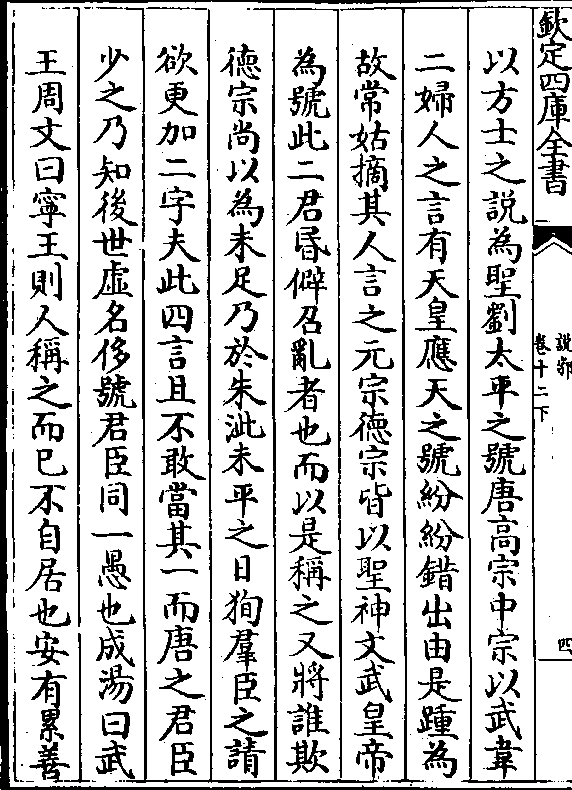 欽定四庫全書
說郛
卷十二下
四
以方士之說為聖劉太平之號唐高宗中宗以武韋
二婦人之言有天皇應天之號紛紛錯出由是踵為
故常姑摘其人言之元宗德宗皆以聖神文武皇帝
為號此二君昬僻召亂者也而以是稱之又將誰欺
徳宗尚以為未足乃於朱泚未平之日狥羣臣之請
欲更加二字夫此四言且不敢當其一而唐之君臣
少之乃知後世虛名侈號君臣同一愚也成湯曰武
王周文曰寧王則人稱之而已不自居也安有累善